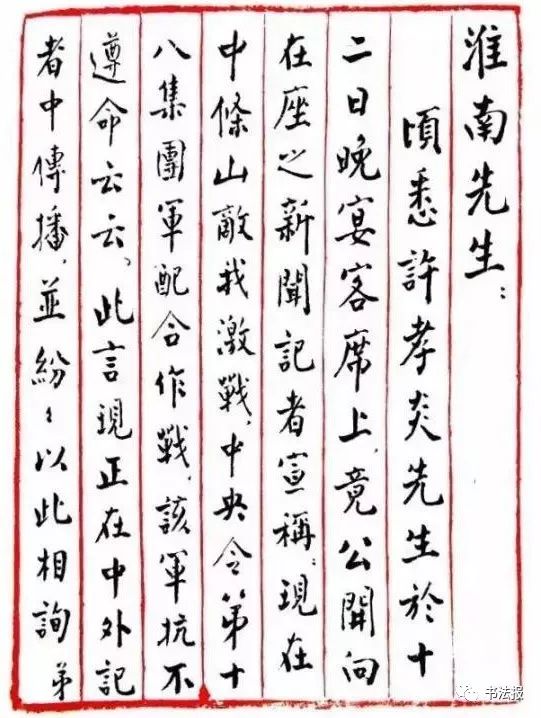 淮南先生：
頃悉許孝炎先生於十
二日晚宴客席上，竟公開向
在座之新聞記者宣稱：現在
中條山敵我激戰，中央令第十
八集團軍配合作戰，該軍抗不
遵命云云、此言現正在中外記
者中傳播，並紛〻以此相詢弟
书法报